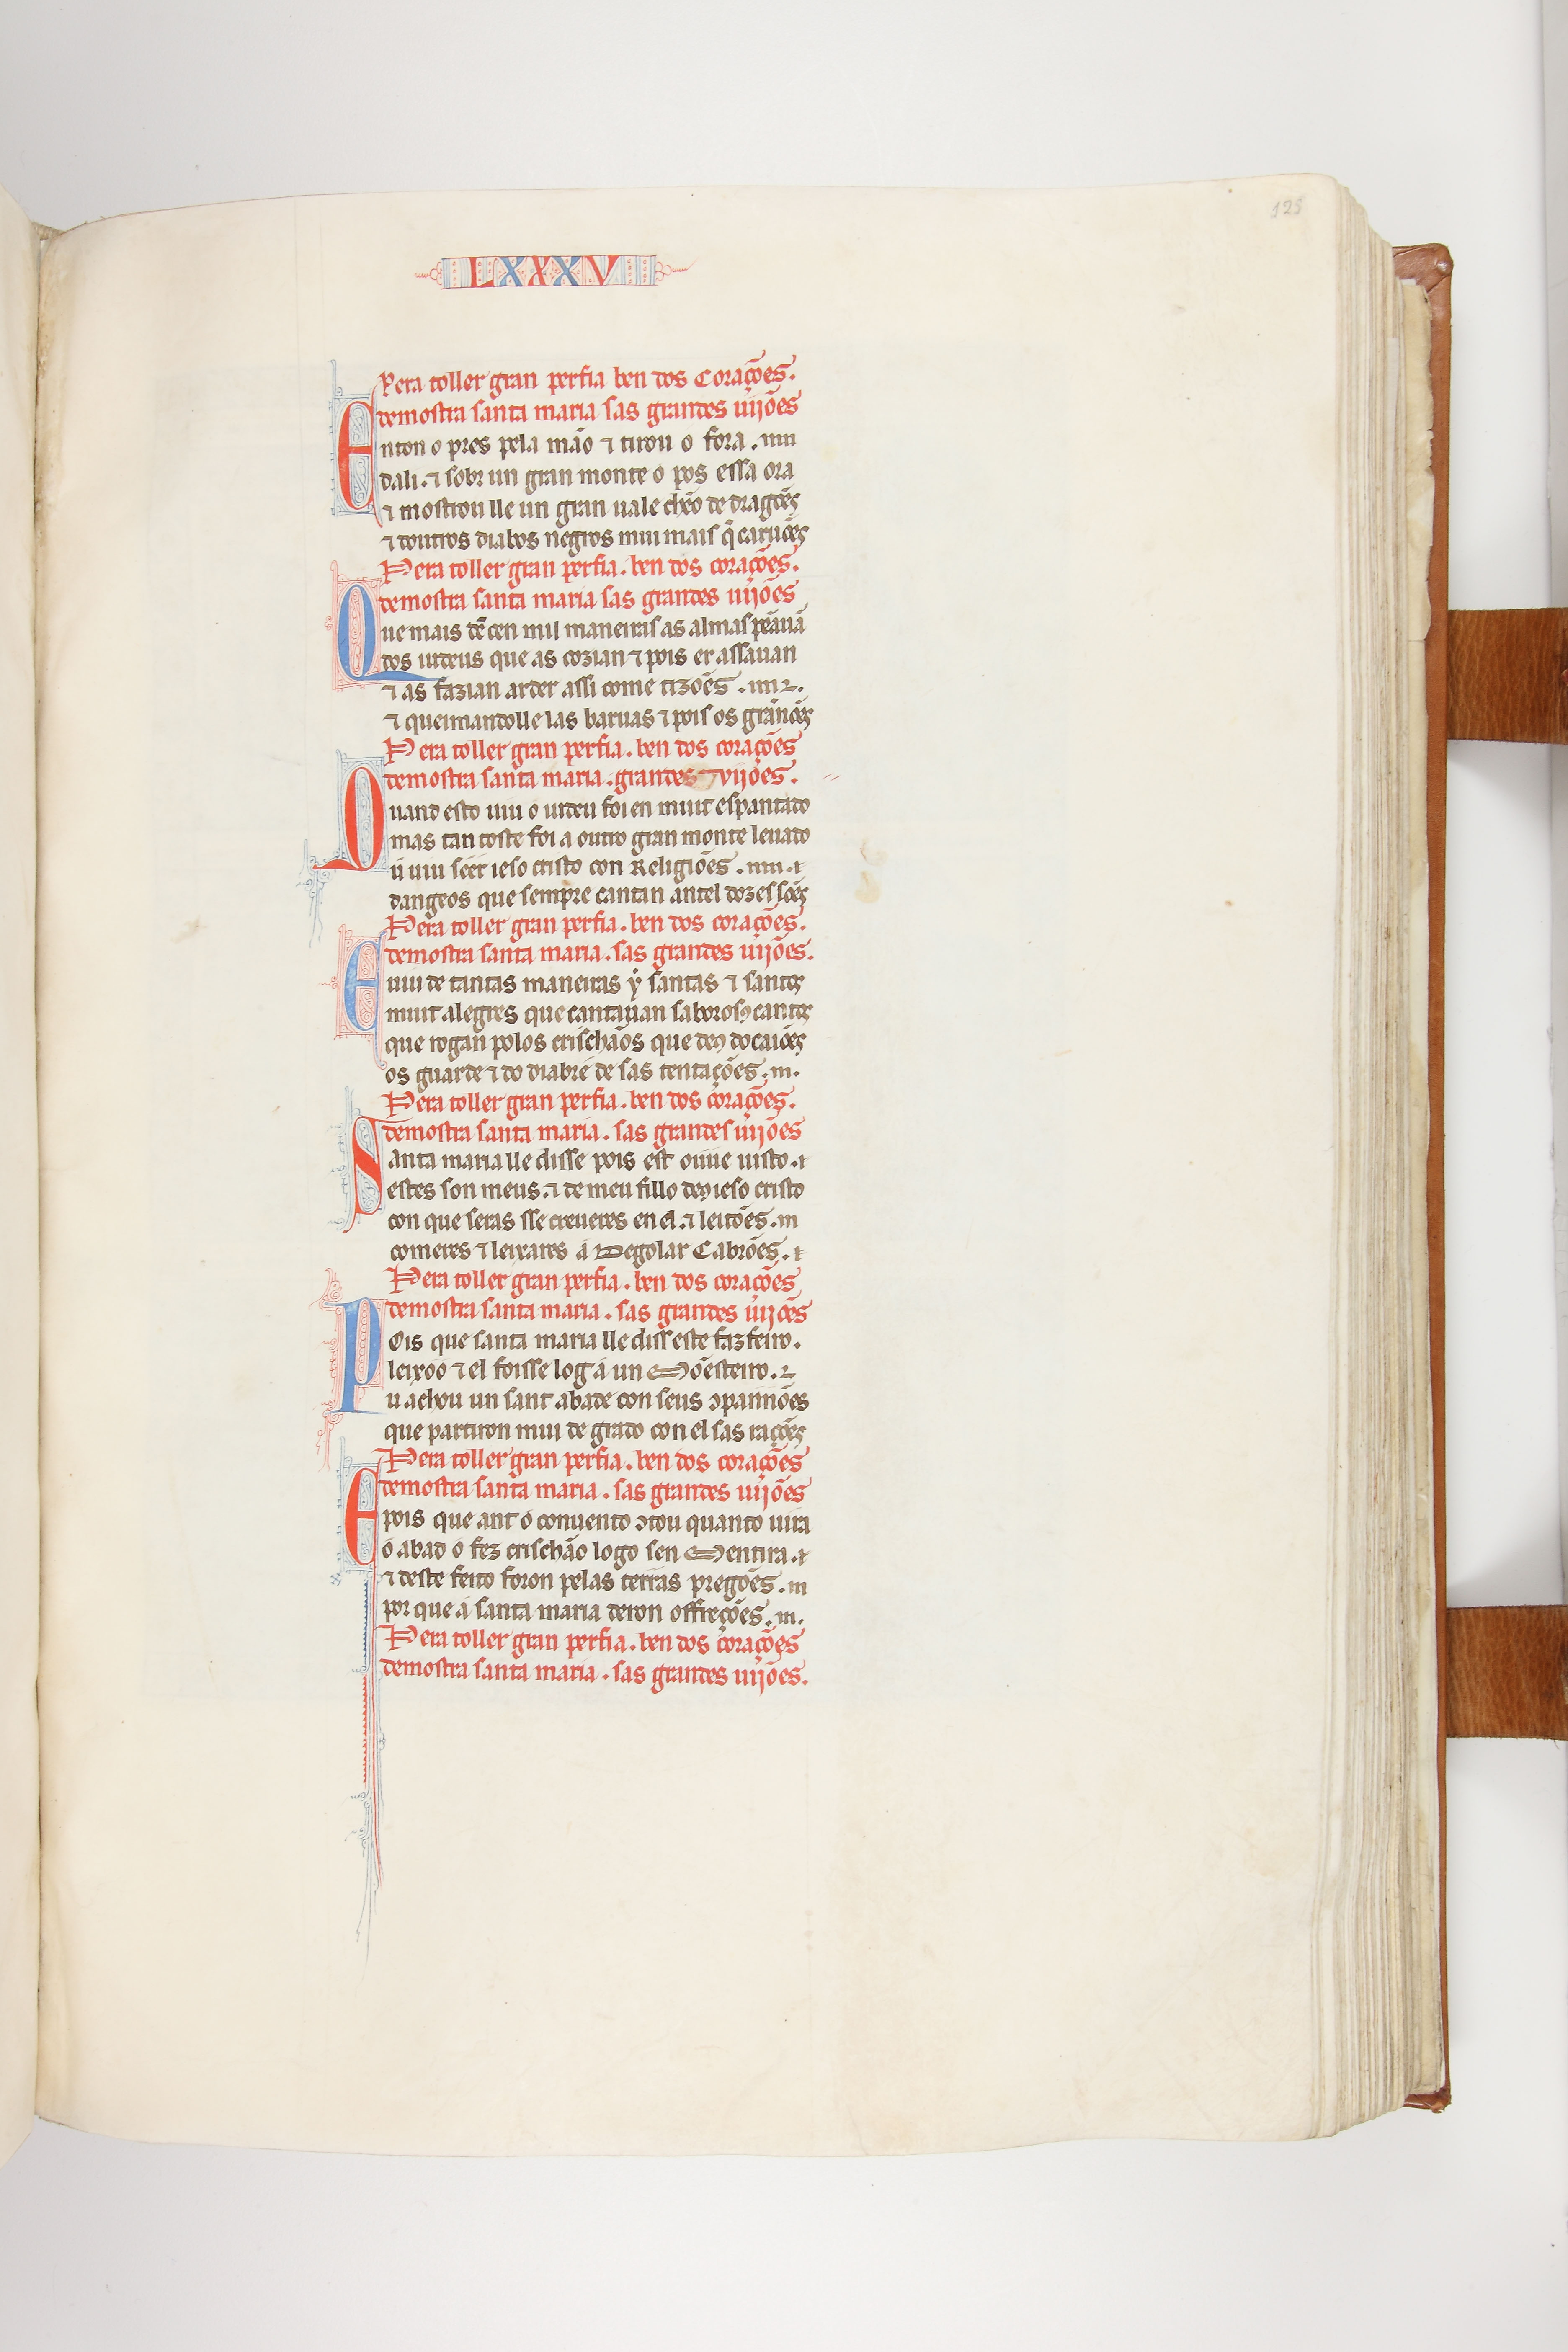 125
LXXXV
Pera toller gran perfia ben dos Corações.
demostra santa maria sas grandes uijões
Enton o pres pela mão ⁊ tirou o fora.
dali. ⁊ sobr un gran monte o pos essa ora
⁊ mostrou lle un gran uale chẽo de dragões
⁊ doutros diabos negros mui mais q̃ caruões
Pera toller gran perfia. ben dos corações.
demostra santa maria sas grandes uijões
Que mais de cen mil maneiras as almas peãuã
dos iudeus que as cozian ⁊ pois er assauan
⁊ as fazian arder assi come tizões.
⁊ queimandolle las baruas ⁊ pois os granões
Pera toller gran perfia. ben dos corações
demostra santa maria. grandes uijões.
Quand esto uiu o iudeu foi en muit espantado
mas tan toste foi a outro gran monte leuado
ú uiu séér ieso cristo con Religiões.
dangeos que sempre cantan antel dozes sões
Pera toller gran perfia. ben dos corações.
demostra santa maria. sas grandes uijões.
E uiu de tantas maneiras ẏ santas ⁊ santos
muit alegres que cantauan saborosꝯ cantos
que rogan polos crischãos que deꝯ docaiões
os guarde ⁊ do diabré de sas tentações.
Pera toller gran perfia. ben dos corações.
demostra santa maria. sas grandes uijões
Santa maria lle disse pois est ouue uisto.
estes son meus. ⁊ de meu fillo deꝯ ieso cristo
con que seras sse creueres en el. ⁊ leitões.
comeres ⁊ leixares á Degolar Cabrões.
Pera toller gran perfia. ben dos corações
demostra santa maria. sas grandes uijões
Pois que santa maria lle diss este faz feiro.
leixóo ⁊ el foisse log á un Mõesteiro.
u achou un sant abade con seus ↄpannões
que partiron mui de grado con el sas rações
Pera toller gran perfia. ben dos corações
demostra santa maria. sas grandes uijões
E pois que ant ó conuento ↄtou quanto uira
ó abad ó fez crischão logo sen Mentira.
⁊ deste feito foron pelas terras pregões.
por que á santa maria deron offreções.
Pera toller gran perfia. ben dos corações
demostra santa maria. sas grandes uijões.